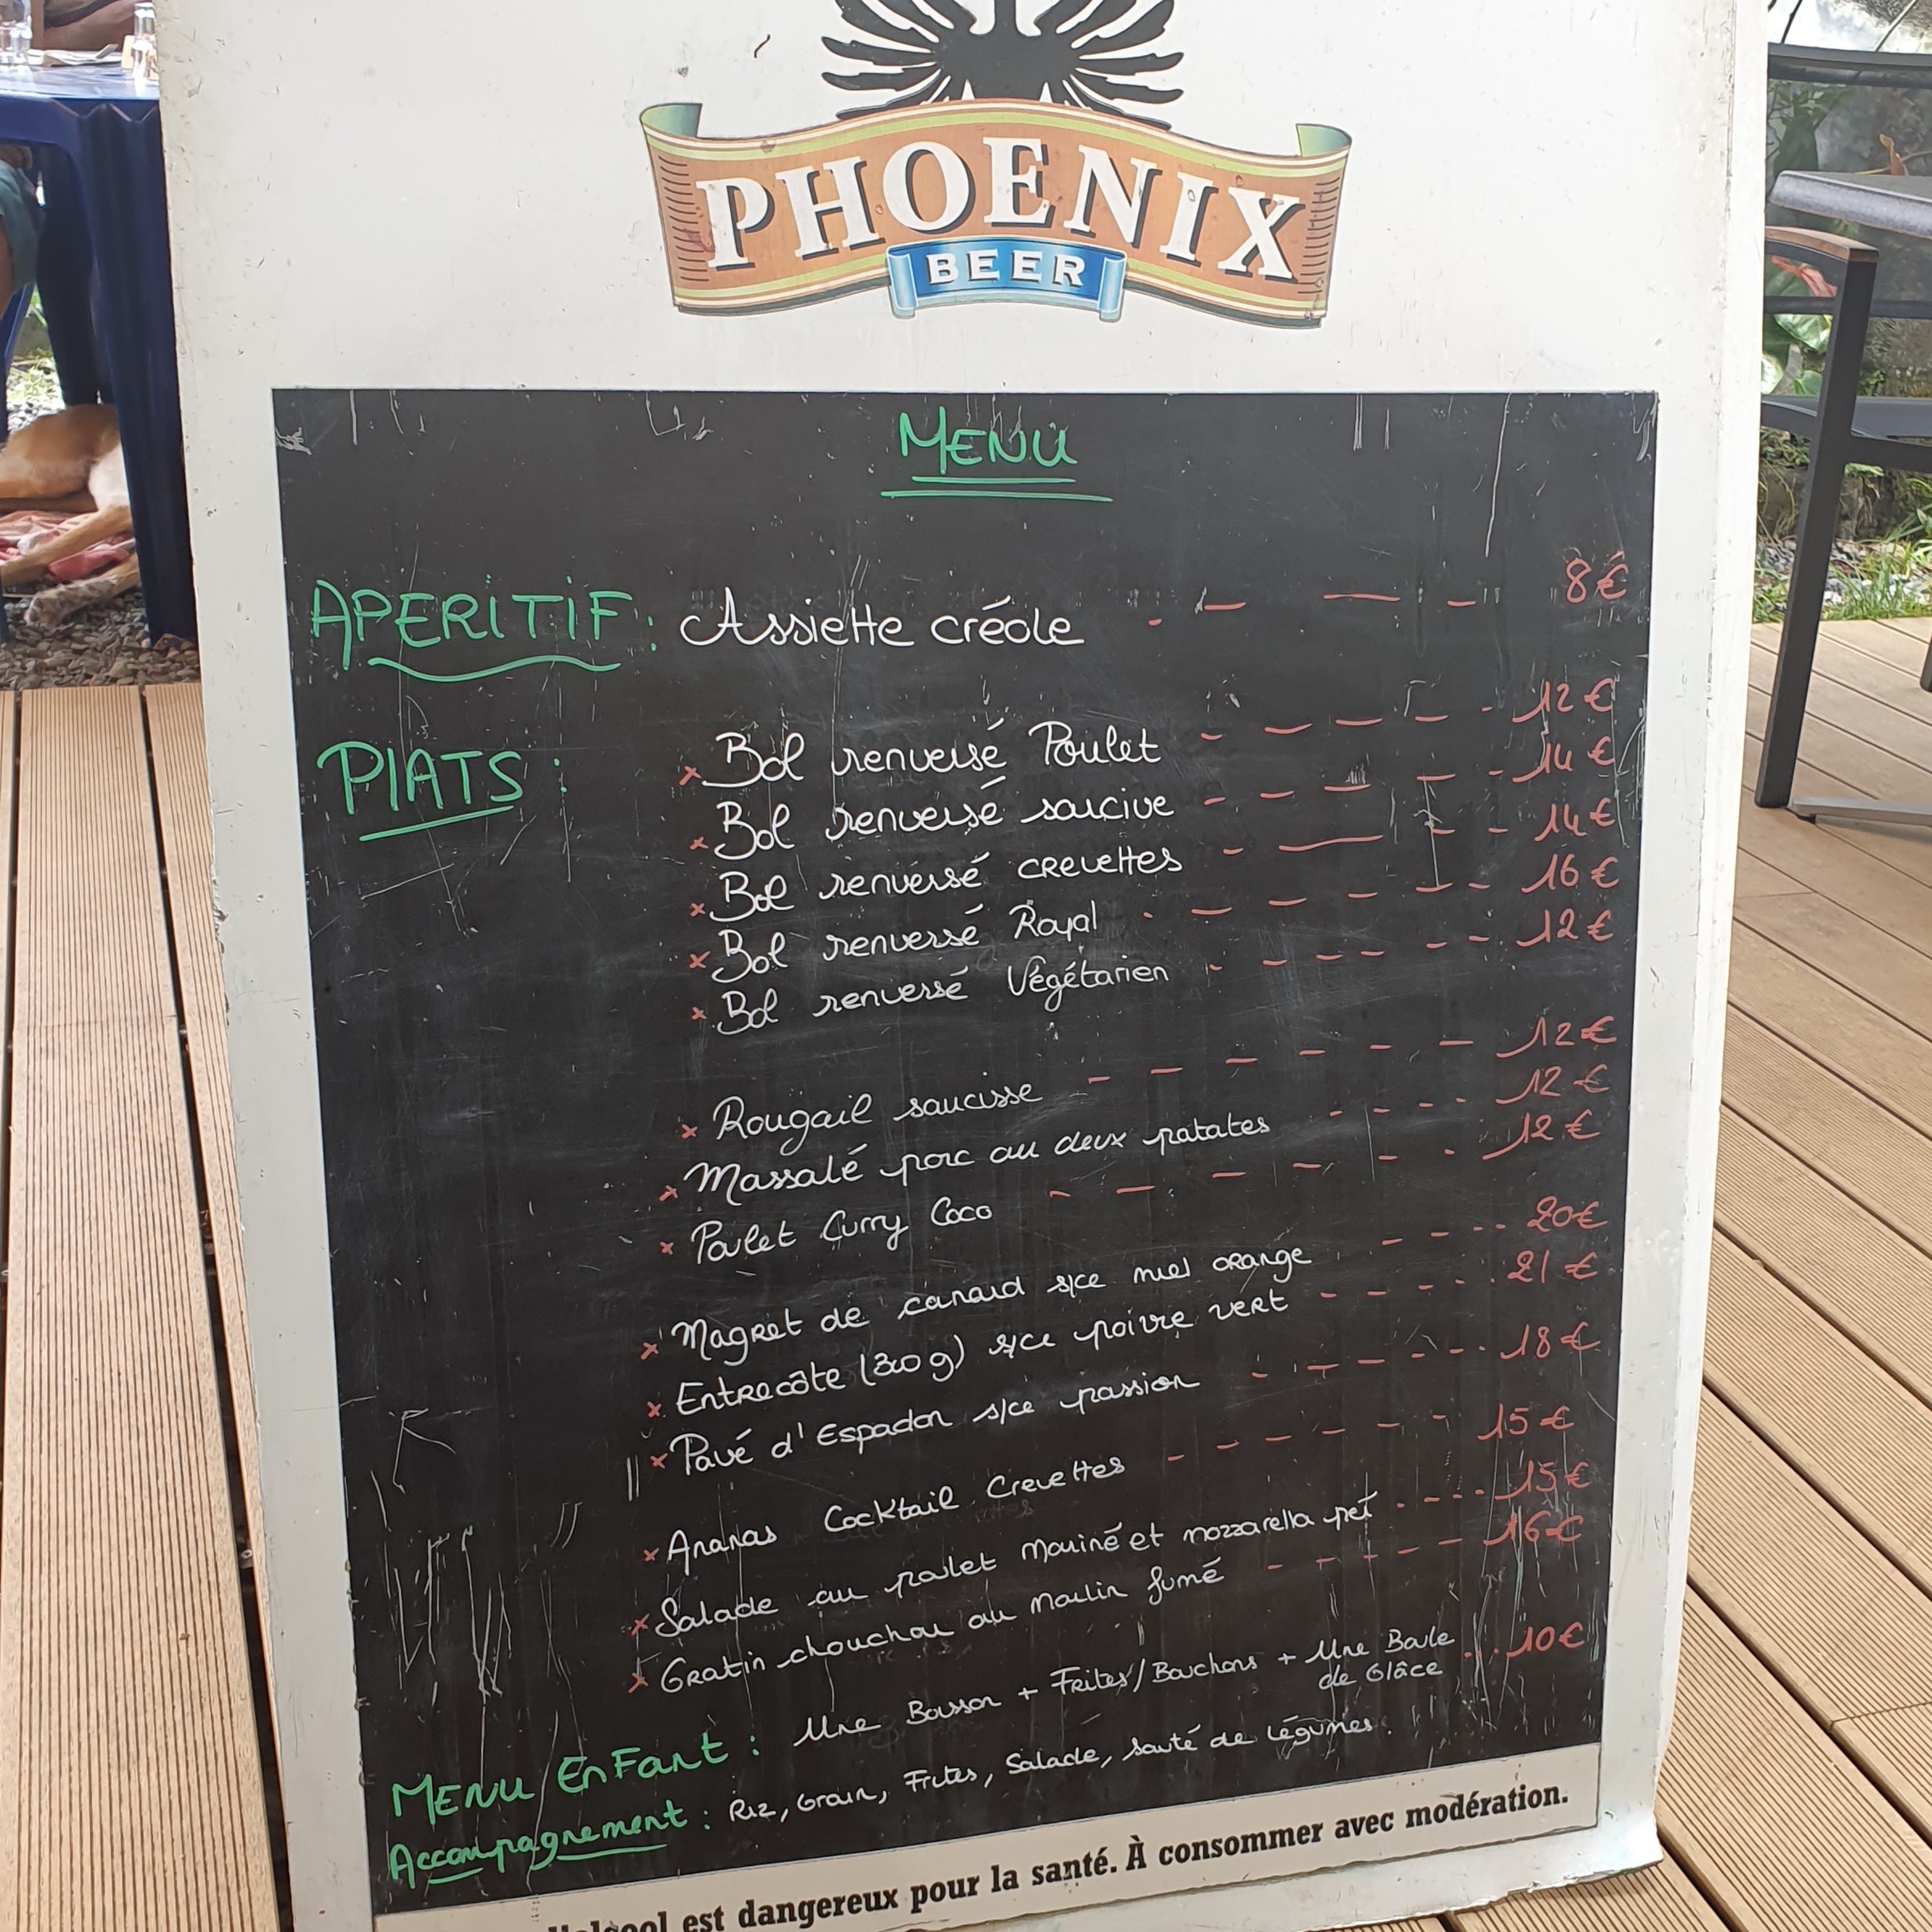 PHOENIX
BEER
MENU
APERITIF : Assiette créole - - - - 8€
PlATS :
x Bol renversé Poulet - - - - - 12€
x Bol renversé saucive - - - - - 14€
x Bol renversé crevettes - - - - 14€
x Bol renversé Royal - - - - - - 16€
x Bol renversé Végétarien - - - - - - 12€
x Rougail saucisse - - - - - - 12€
x Massalé porc au deux patates - - - - 12€
x Poulet Curry Coco - - - - - - 12€
x Magret de canard s/ce miel orange - - - - 20€
x Entrecôte (300g) s/ce poivre vert - - - - - 21€
x Pavé d'Espadon s/ce passion - - - - - - 18€
x Ananas Cocktail Crevettes - - - - - - 15€
x Salade au poulet mariné et mozzarella pet - - - - 15€
x Gratin chouchou au moulin fumé - - - - - 16€
MENU EnFant : Une Boisson + Frites/Bouchons + Une Boule ... 10€
de Glâce
Accompagnement : Riz, Grain, Frites, Salade, sauté de légumes.
l'alcool est dangereux pour la santé. À consommer avec modération.